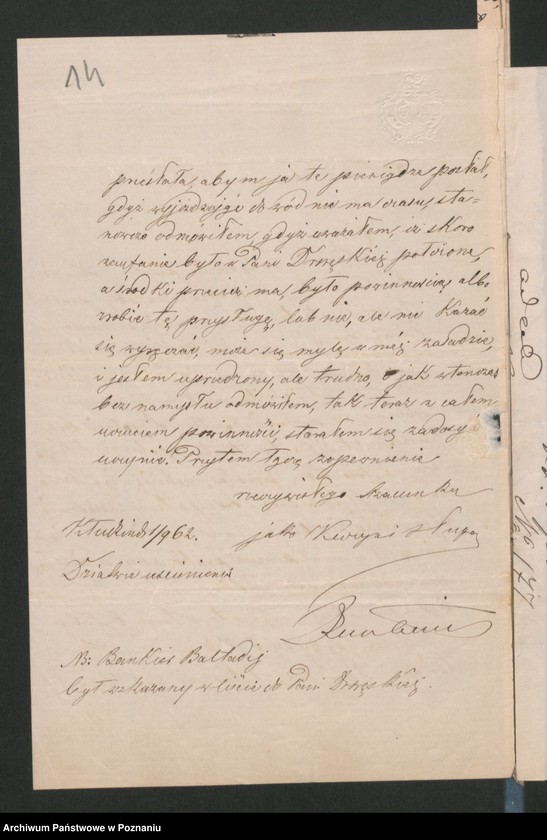 14
przesłała, abym ja te pieniądze posłał,
gdyż wyjeżdżając do wód nie ma czasu, sta-
nowczo odmówiłem, gdyż uważałem, iż skoro
zaufanie było w Pani Drzęskiéj położone,
a środki przecie ma, było powinnością albo
zrobić tę przysługę, lub nie, ale nie kazać
się wyręczać, może się mylę w méj zasadzie,
i jestem uprzedzony, ale trudno, jak wtenczas
bez namysłu odmówiłem, tak teraz z całem
uczuciem powinności, starałem się zadosyć
uczynić. Przytem łączę zapewnienie
rzeczywistego szacunku
1/9 62. jako sługa
Dziatwie uściśnienia
NB: Bankier
był wskazany w liście do Pani Drzęskiéj.
No 147
Archiwum Państwowe w Poznaniu